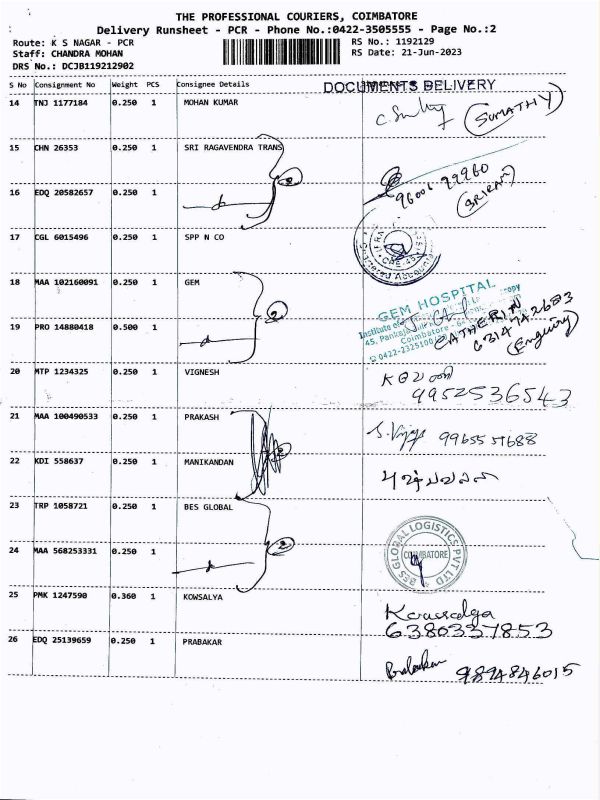 THE PROFESSIONAL COURIERS, COIMBATORE
Delivery Runsheet - PCR - Phone No.:0422-3505555 - Page No.:2
Route: K S NAGAR - PCR
RS No.: 1192129
Staff: CHANDRA MOHAN
RS Date: 21-Jun-2023
DRS No.: DCJB119212902
S No Consignment No Weight PCS Consignee Details
DOCUMENTS DELIVERY
14 TNJ 1177184 0.250 1 MOHAN KUMAR
(SUMATHY)
15 CHN 26353 0.250 1 SRI RAGAVENDRA TRANS
2
96001 99960
(SRIRAM)
16 EDQ 20582657 0.250 1
17 CGL 6015496 0.250 1 SPP N CO
Chartered Accountants
18 MAA 102160091 0.250 1 GEM
2
GEM HOSPITAL
Institute of
45, Pankaja
Coimbatore
0422-2325100
CATHERIN
6314742683
(Enquiry)
19 PRO 14880418 0.500 1
20 MTP 1234325 0.250 1 VIGNESH
9952536543
21 MAA 100490533 0.250 1 PRAKASH
99655 51688
22 KDI 558637 0.250 1 MANIKANDAN
23 TRP 1058721 0.250 1 BES GLOBAL
2
BES GLOBAL LOGISTICS PVT LTD
COIMBATORE
24 MAA 568253331 0.250 1
25 PMK 1247590 0.360 1 KOWSALYA
Kowsalya
6380337853
26 EDQ 25139659 0.250 1 PRABAKAR
9894846015